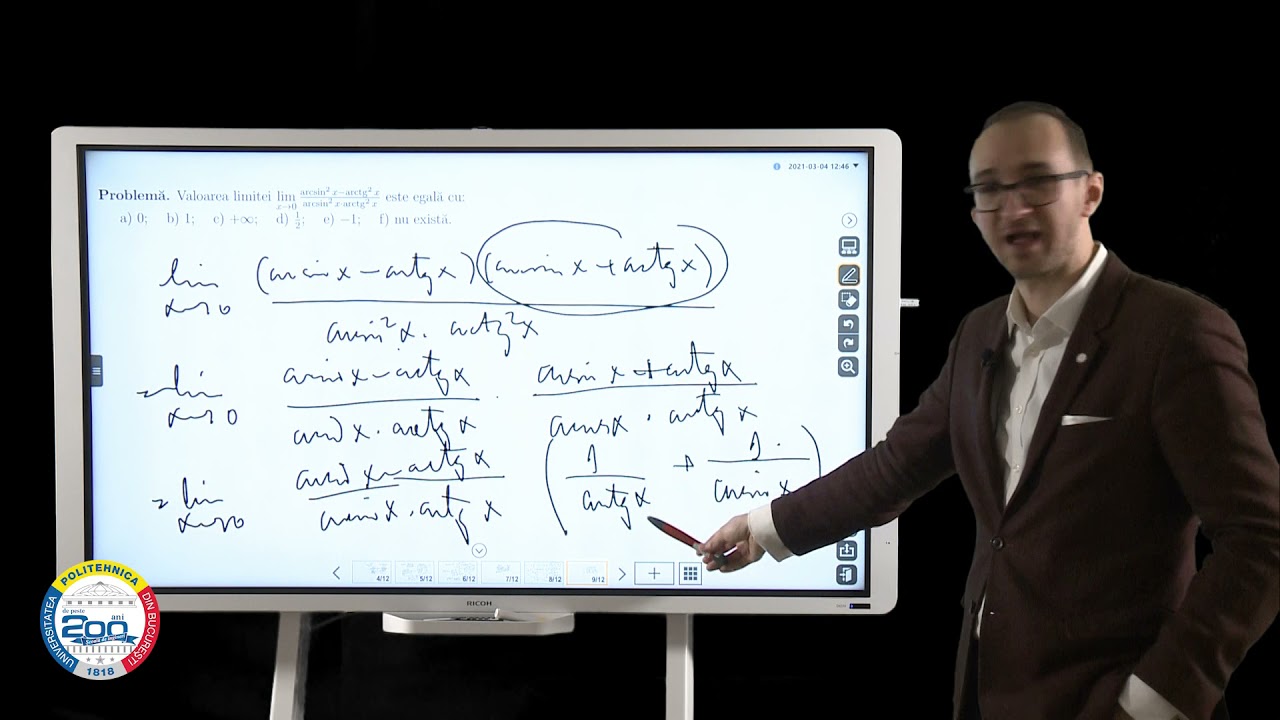 2021-03-04 12:46
Problemă. Valoarea limitei lim x→0 arcsin² x−arctg² x / arcsin² x·arctg² x este egală cu:
a) 0; b) 1; c) +∞; d) 1/2; e) −1; f) nu există.
lim x→0 (arcsin x − arctg x)(arcsin x + arctg x) / arcsin² x · arctg² x
= lim x→0 arcsin x − arctg x / arcsin x · arctg x · arcsin x + arctg x / arcsin x · arctg x
= lim x→0 arcsin x − arctg x / arcsin x · arctg x ( 1 / arctg x + 1 / arcsin x )
4/12 5/12 6/12 7/12 8/12 9/12
RICOH
UNIVERSITATEA POLITEHNICA DIN BUCUREȘTI
de peste
200 ani
1818